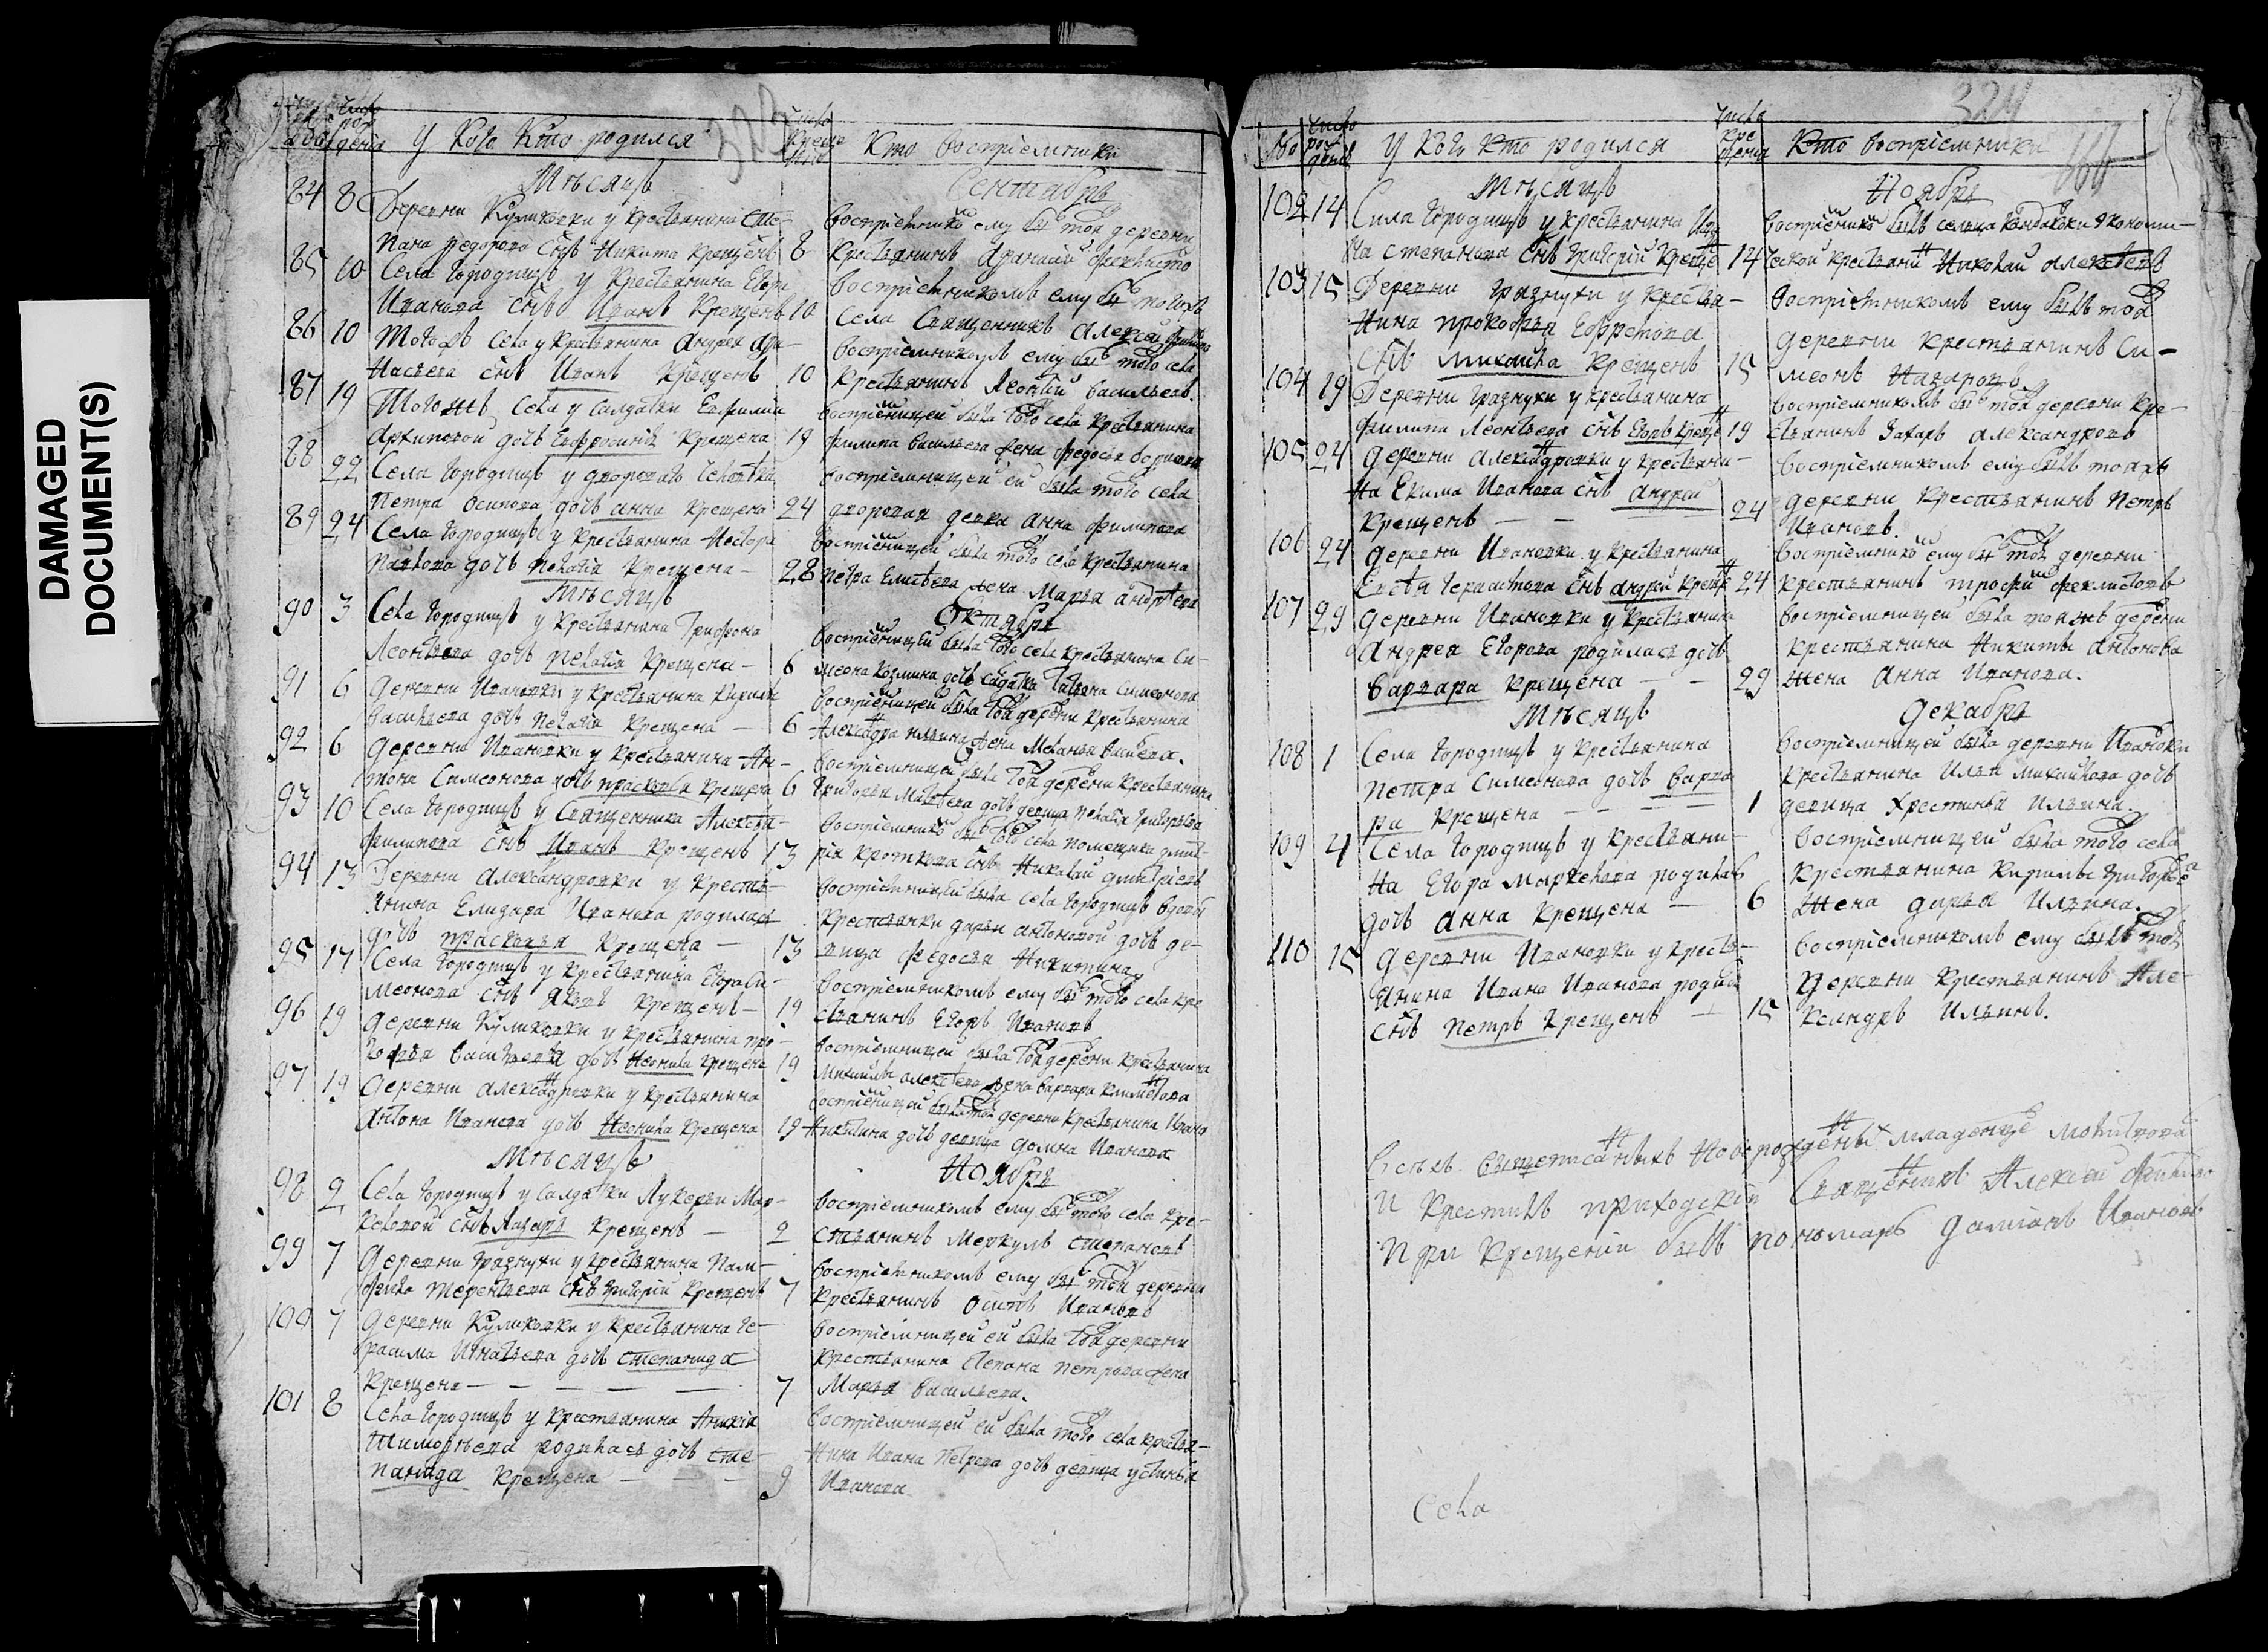 DAMAGED
DOCUMENT(S)
У кого кто родился
Кто восприемники
Мѣсяцъ
Сентябрь
84 8 Деревни Куликовки у крестьянина Сте-
пана Федорова снъ Никита крещенъ 8
восприемнико ему бы той деревни
крестьянинъ
85 10 Села Городищъ у крестьянина Егора
Иванова снъ Иванъ крещенъ 10
восприемникомъ ему бы тогожъ
села священникъ Алексей
86 10 Тогожъ села у крестьянина Андрея Афа-
насьева снъ Иванъ крещенъ 10
восприемникомъ ему бы того села
крестьянинъ Леонтий Васильевъ.
87 19 Тогожъ села у салдатки Евфимии
Архиповой дочь Евфросиния крещена 19
восприеницей была того села крестьянина
Филипа Васильева жена Федосья
88 22 Села Городищъ у дворовагѡ человѣка
Петра Осипова дочь Анна крещена 24
восприемницей ей была того села
дворовая девка Анна Филипова
89 24 Села Городищъ у крестьянина Нестора
Павлова дочь Пелагия крещена - 28
восприеницей была того села крестьянина
Петра Елисѣева жена Марья Андрѣева
Мѣсяцъ
Октябрь
90 3 Села Городищъ у крестьянина Трифона
Леонтьева дочь Пелагия крещена - 6
восприеницей была того села крестьянина Си-
меона Козмина дочь салдатка Татьяна Симеонова
91 6 Деревни Ивановки у крестьянина Кирилы
Васильева дочь Пелагия крещена - 6
восприеницей была той дерени крестьянина
Александра Ильина жена Меланья
92 6 Деревни Ивановки у крестьянина Ан-
тона Симеонова дочь Прасковья крещена 6
восприемницей была той дерени крестьянина
Григорья Матвѣева дочь девица Пелагия Григорьева
93 10 Села Городищъ у священника Алексѣя
Филипова снъ Иванъ крещенъ 13
восприемнико бы того села помещика Дмит-
рия Кроткова снъ Николай Дмитриевъ
94 13 Деревни Александровки у кресть-
янина Елизара Иванова родилась
дочь Прасковья крещена - 13
восприемницей была села Городищъ вдовы
крестьянки Дарьи Антоновой дочь де-
вица Федосья Никитина
95 17 Села Городищъ у крестьянина Егора Си-
меонова снъ Яковъ крещенъ - 19
восприемникомъ ему бы того села кре-
стьянинъ Егоръ Ивановъ
96 19 Деревни Куликовки у крестьянина Про-
кофья Васильева дочь Неонила крещена 19
восприемницей была той дерени крестьянина
Михайлы Алексѣева жена Варвара Климентова
97 19 Деревни Александровки у крестьянина
Антона Иванова дочь Неонила крещена 19
восприеницей была той деревни крестьянина Ивана
Никитина дочь девица Домна Иванова
Мѣсяцъ
Ноябрь
98 2 Села Городищъ у салдатки Лукерьи Мар-
ковой снъ Лазарь крещенъ - 2
восприемникомъ ему бы того села кре-
стьянинъ Меркулъ Степановъ
99 7 Деревни Грязнухи у крестьянина Пам-
фила Терентьева снъ Григорий крещенъ 7
восприемникомъ ему бы той деревни
крестьянинъ Осипъ Ивановъ
100 7 Деревни Куликовки у крестьянина Ге-
расима Игнатьева дочь Степанида
крещена - 7
восприемницей ей была той деревни
крестьянина Степана Петрова жена
Марья Васильева.
101 8 Села Городищъ у крестьянина Аникия
Тимофеева родилась дочь Сте-
панида крещена - 9
восприемницей ей была того села крестья-
нина Ивана Петрова дочь девица Устинья
Иванова
324
У кого кто родился
Кто восприемники
Мѣсяцъ
Ноябрь
102 14 Села Городищъ у крестьянина Ива
на Степанова снъ Григорий креще 14
восприемнико былъ сельца Кандаковки экономи-
ческой крестьяни Николай Алексѣевъ
103 15 Деревни Грязнухи у крестья-
нина Прокофья Ефремова
снъ Михайла крещенъ 15
восприемникомъ ему былъ той
деревни крестьянинъ Си-
меонъ Назаровъ
104 19 Деревни Грязнухи у крестьянина
Филипа Леонтьева снъ Егоръ креще 19
восприемникомъ бы той деревни кре-
стьянинъ Захаръ Александровъ
105 24 Деревни Александровки у крестьяни-
на Екима Иванова снъ Андрей
крещенъ - - 24
восприемникомъ ему былъ тояжъ
деревни крестьянинъ Петръ
Ивановъ.
106 24 Деревни Ивановки у крестьянина
снъ Андрей креще 24
восприемнико ему бы той деревни
крестьянинъ Трофи Феклистовъ
107 29 Деревни Ивановки у крестьянина
Андрея Егорова родилась дочь
Варвара крещена - - 29
восприемницей была тояжъ дерени
крестьянина Никиты Антонова
жена Анна Иванова.
Мѣсяцъ
Декабрь
108 1 Села Городищъ у крестьянина
Петра Симеонова дочь Варва
ра крещена - 1
восприемницей была деревни Иваноки
крестьянина Ильи Михайлова дочь
девица Хрестинья Ильина.
109 4 Села Городищъ у крестьяни-
на Егора Маркелова родилась
дочь Анна крещена - 6
восприемницей была того села
крестьянина Кирилы Григорьева
жена Дарья Ильина.
110 15 Деревни Ивановки у кресть-
янина Ивана Иванова родился
снъ Петръ крещенъ - 15
восприемникомъ ему былъ той
деревни крестьянинъ Але-
ксандръ Ильинъ.
Всѣхъ вышеписаныхъ новорожденых младенце молитвовалъ
и крестилъ приходский священикъ Алексей Филипов
При крещении былъ пономарь Дамианъ Ивановъ
Села